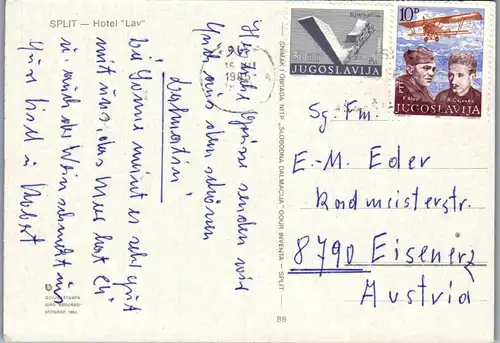 SPLIT — Hotel "Lav"
Herzliche Grüsse senden wir
Euch aus dem schönen
Dalmatien
Die Sonne meint es sehr gut
mit uns, das Meer hat
u. auch der Wein schmeckt uns
Eure
Robert
SNIMAK I OBRADA NIŠP „SLOBODNA DALMACIJA" OOUR INVENTA — SPLIT
BB
JUGOSLAVIJA
10 P
JUGOSLAVIJA
Sg. Fm.
E.-M. Eder
Radmeisterstr.
8790 Eisenerz
Austria